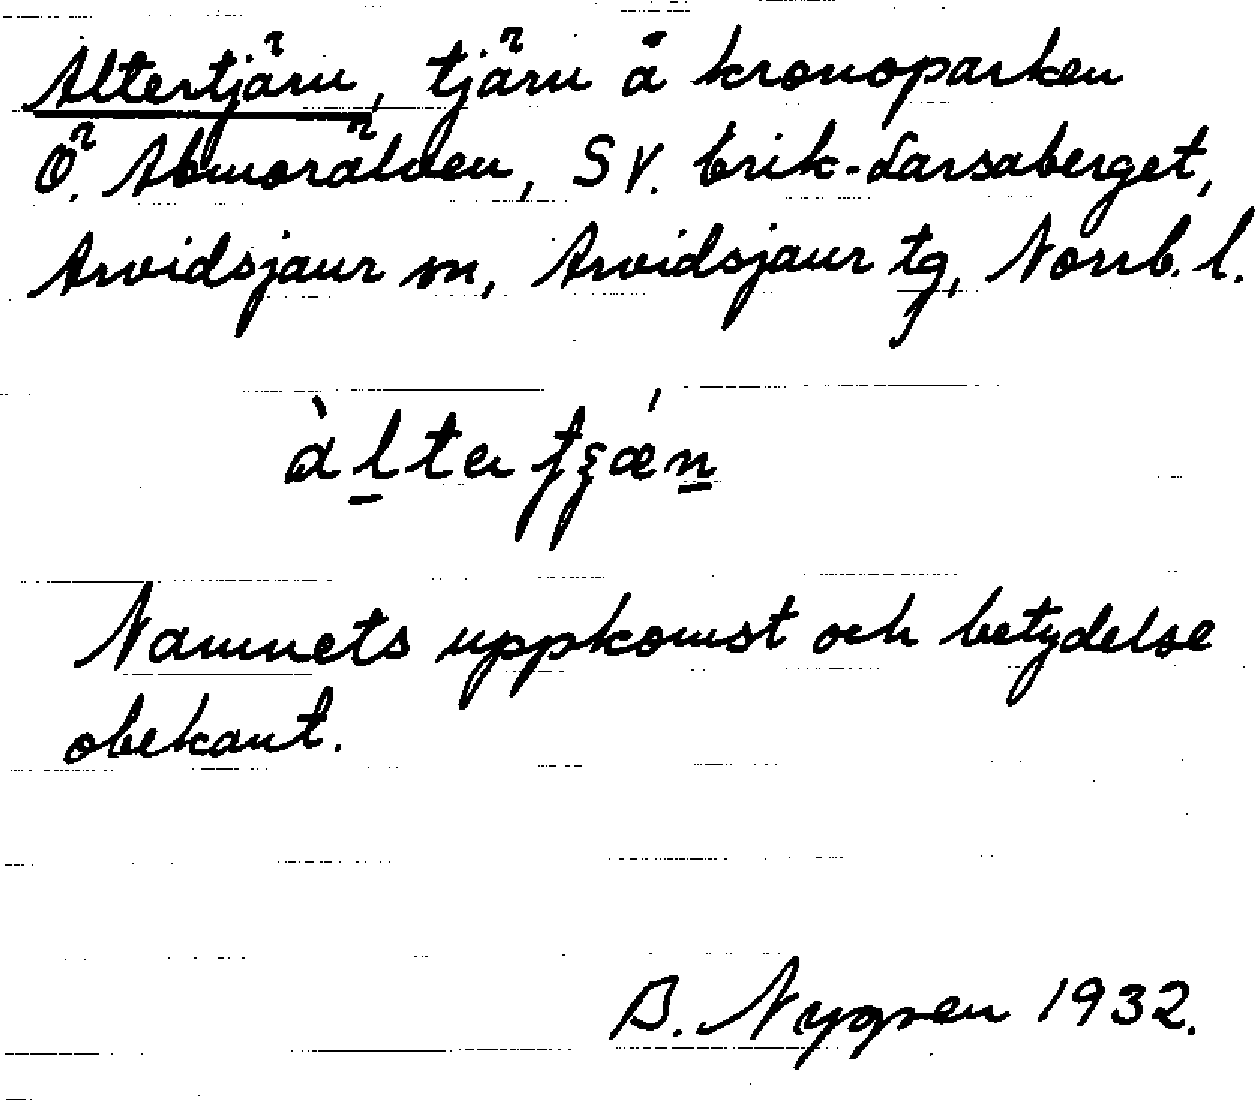 Altertjärn, tjärn å kronoparken
Ö. Abmorälven, SV. Erik-Larsaberget,
Arvidsjaur sn, Arvidsjaur tg, Norrb. l.
Namnets uppkomst och betydelse
obekant.
B. Nygren 1932.